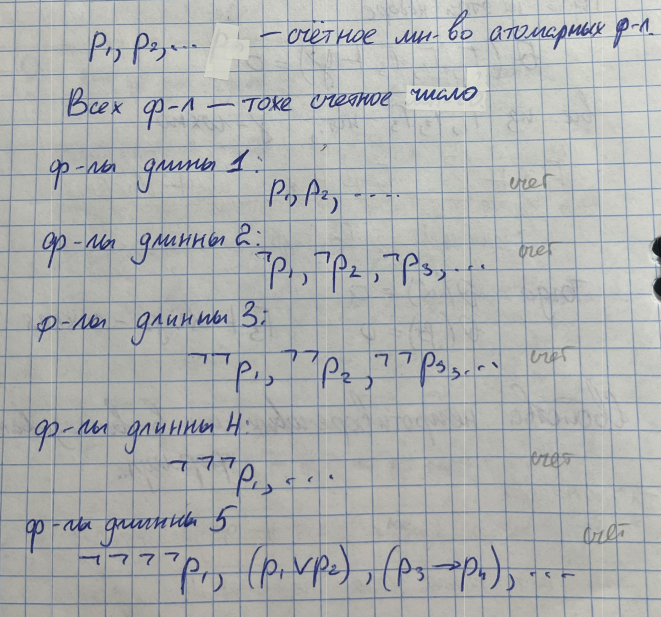 p₁, p₂, ... — счётное мн-во атомарных ф-л.
Всех ф-л — тоже счетное число
ф-лы длины 1:
p₁, p₂, .... счет
ф-лы длинны 2:
¬p₁, ¬p₂, ¬p₃, ... счет
ф-лы длинны 3:
¬¬p₁, ¬¬p₂, ¬¬p₃, ... счет
ф-лы длинны 4:
¬¬¬p₁, ... счет
ф-лы длинны 5
¬¬¬¬p₁, (p₁∨p₂), (p₃→p₄), ... счет